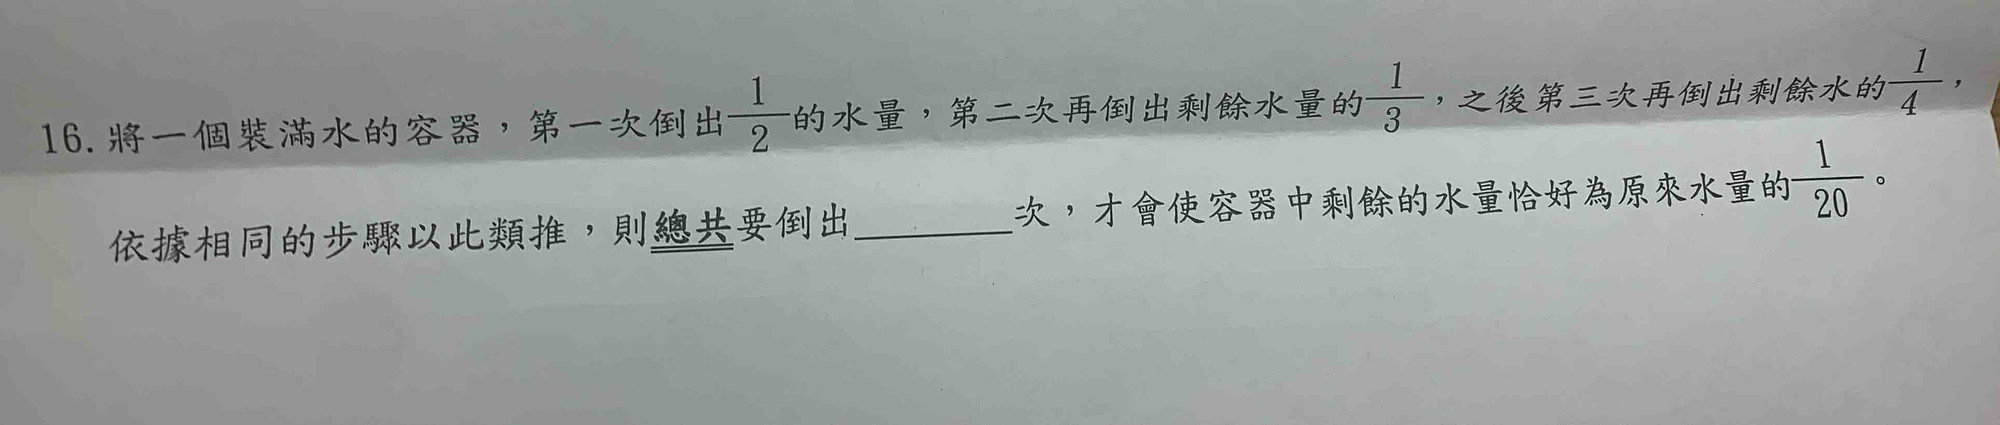 16. 將一個裝滿水的容器，第一次倒出1/2的水量，第二次再倒出剩餘水量的1/3，之後第三次再倒出剩餘水的1/4，
依據相同的步驟以此類推，則總共要倒出________次，才會使容器中剩餘的水量恰好為原來水量的1/20。